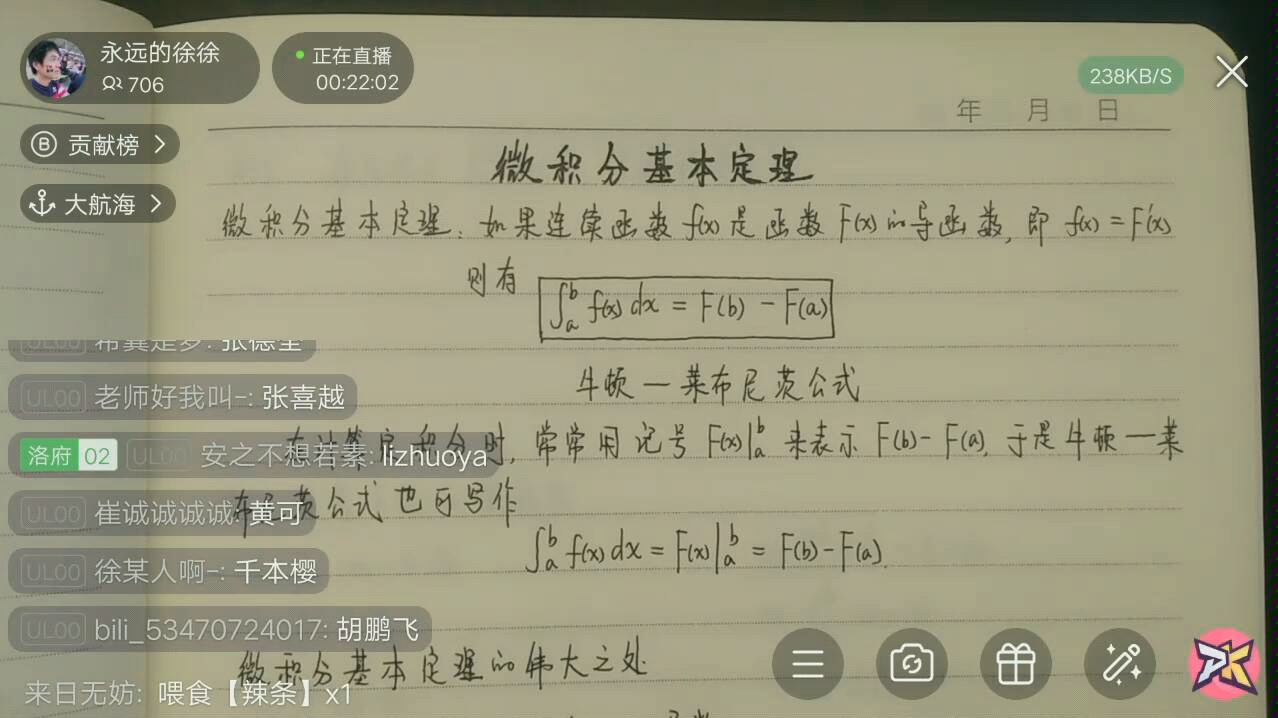 永远的徐徐
706
正在直播
00:22:02
238KB/S
年 月 日
贡献榜
大航海
微积分基本定理
微积分基本定理:如果连续函数 f(x) 是函数 F(x) 的导函数, 即 f(x) = F'(x)
则有
∫_a^b f(x) dx = F(b) - F(a)
牛顿一莱布尼茨公式
时, 常常用记号 F(x)|_a^b 来表示 F(b) - F(a), 于是牛顿一莱
布尼茨公式也可写作
∫_a^b f(x) dx = F(x)|_a^b = F(b) - F(a).
微积分基本定理的伟大之处
UL00 老师好我叫-: 张喜越
洛府 02 UL00 安之不想若素: lizhuoya
UL00 崔诚诚诚诚: 黄可
UL00 徐某人啊-: 千本樱
UL00 bili_53470724017: 胡鹏飞
来日无妨: 喂食【辣条】x1
PK